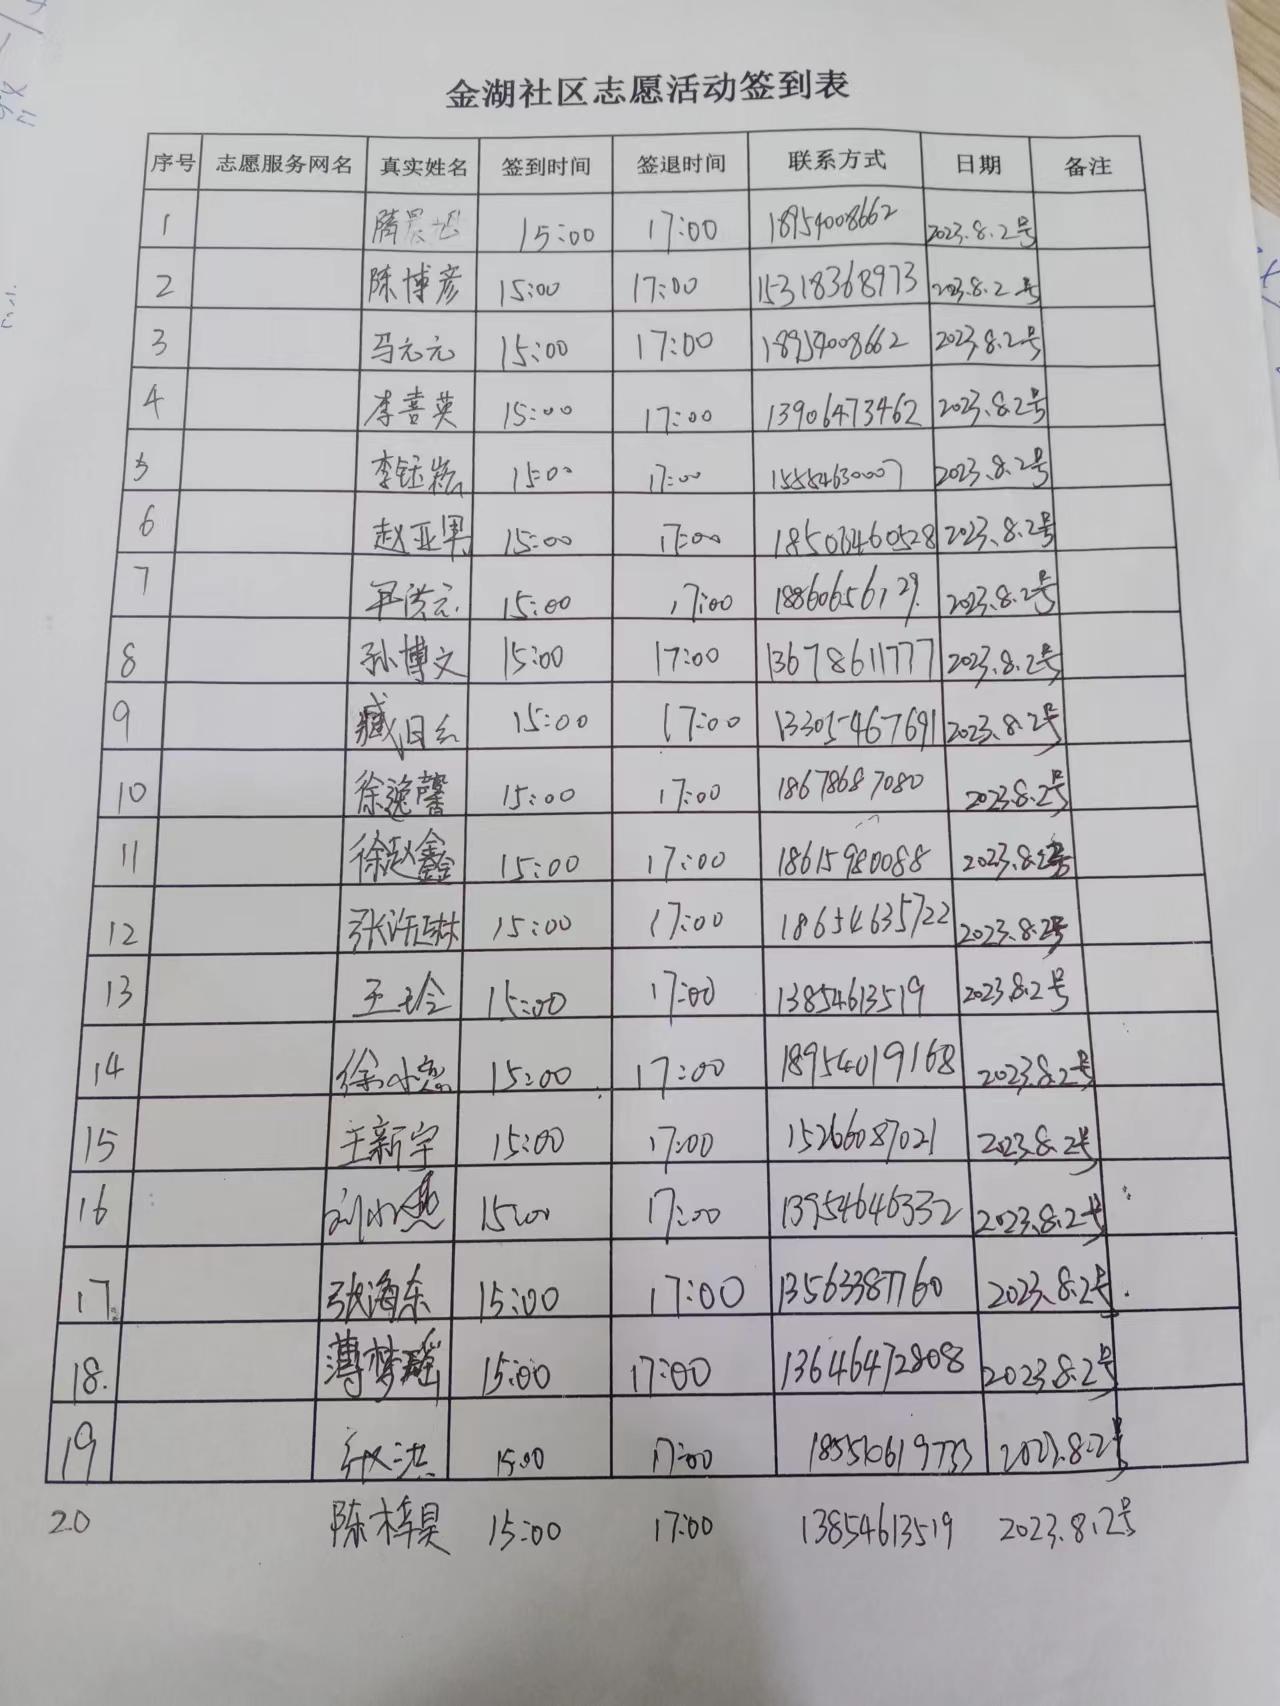 金湖社区志愿活动签到表
序号 志愿服务网名 真实姓名 签到时间 签退时间 联系方式 日期 备注
1 隋晨旭 15:00 17:00 18954008662 2023.8.2号
2 陈博彦 15:00 17:00 15318368973 2023.8.2号
3 马元元 15:00 17:00 18954008662 2023.8.2号
4 李喜英 15:00 17:00 13906473462 2023.8.2号
5 李钰 15:00 17:00 15554630007 2023.8.2号
6 赵亚男 15:00 17:00 2023.8.2号
7 洪元 15:00 17:00 2023.8.2号
8 孙博文 15:00 17:00 13678611777 2023.8.2号
9 臧日 15:00 17:00 13305467691 2023.8.2号
10 徐逸馨 15:00 17:00 18678687080 2023.8.2号
11 徐赵鑫 15:00 17:00 18615980088 2023.8.2号
12 张许琳 15:00 17:00 18654635722 2023.8.2号
13 王玲 15:00 17:00 13854613519 2023.8.2号
14 徐小 15:00 17:00 18954019168 2023.8.2号
15 王新宇 15:00 17:00 15266087021 2023.8.2号
16 刘小燕 15:00 17:00 13954646332 2023.8.2号
17. 张海东 15:00 17:00 13563387760 2023.8.2号.
18. 薄梦瑶 15:00 17:00 13646472808 2023.8.2号
19 洪 15:00 17:00 185510619733 2023.8.2号
20 陈梓昊 15:00 17:00 13854613519 2023.8.2号